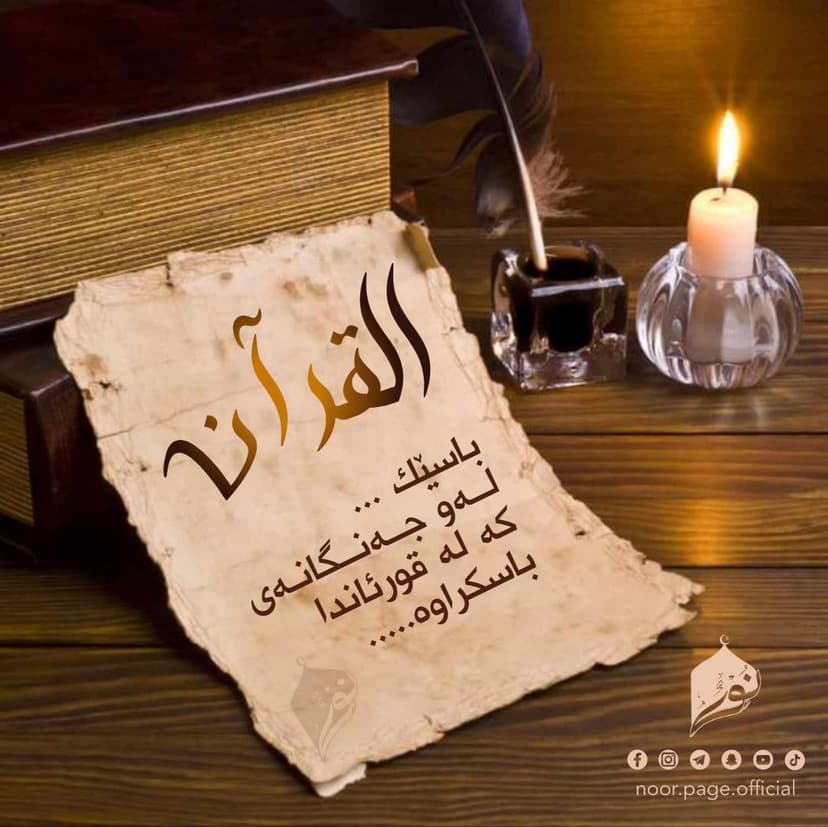 القرآن
باسێك ...
لەو جەنگانەی
كە لە قورئاندا
باسكراوە.....
نور
نور
noor.page.official